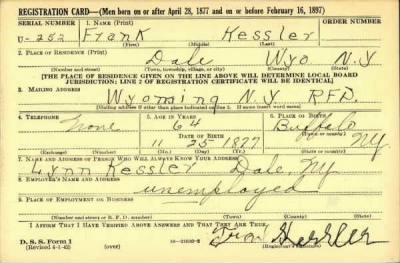 REGISTRATION CARD—(Men born on or after April 28, 1877 and on or before February 16, 1897)
SERIAL NUMBER 1. NAME (Print)
U-252 Frank Kessler
(First) (Middle) (Last)
2. PLACE OF RESIDENCE (Print)
Dale Wyo N.Y
(Number and street) (Town, township, village, or city) (County) (State)
[THE PLACE OF RESIDENCE GIVEN ON THE LINE ABOVE WILL DETERMINE LOCAL BOARD
JURISDICTION; LINE 2 OF REGISTRATION CERTIFICATE WILL BE IDENTICAL]
3. MAILING ADDRESS
Wyoming N.Y. RFD.
[Mailing address if other than place indicated on line 2. If same insert word same]
4. TELEPHONE 5. AGE IN YEARS 6. PLACE OF BIRTH
None 64 Buffalo
DATE OF BIRTH
11 25 1877 NY
(Exchange) (Number) (Mo.) (Day) (Yr.) (State or country)
7. NAME AND ADDRESS OF PERSON WHO WILL ALWAYS KNOW YOUR ADDRESS
Lynn Kessler Dale, NY
8. EMPLOYER'S NAME AND ADDRESS
unemployed
9. PLACE OF EMPLOYMENT OR BUSINESS
(Number and street or R. F. D. number) (Town) (County) (State)
I AFFIRM THAT I HAVE VERIFIED ABOVE ANSWERS AND THAT THEY ARE TRUE.
D. S. S. Form 1
(Revised 4-1-42) (over) Kessler